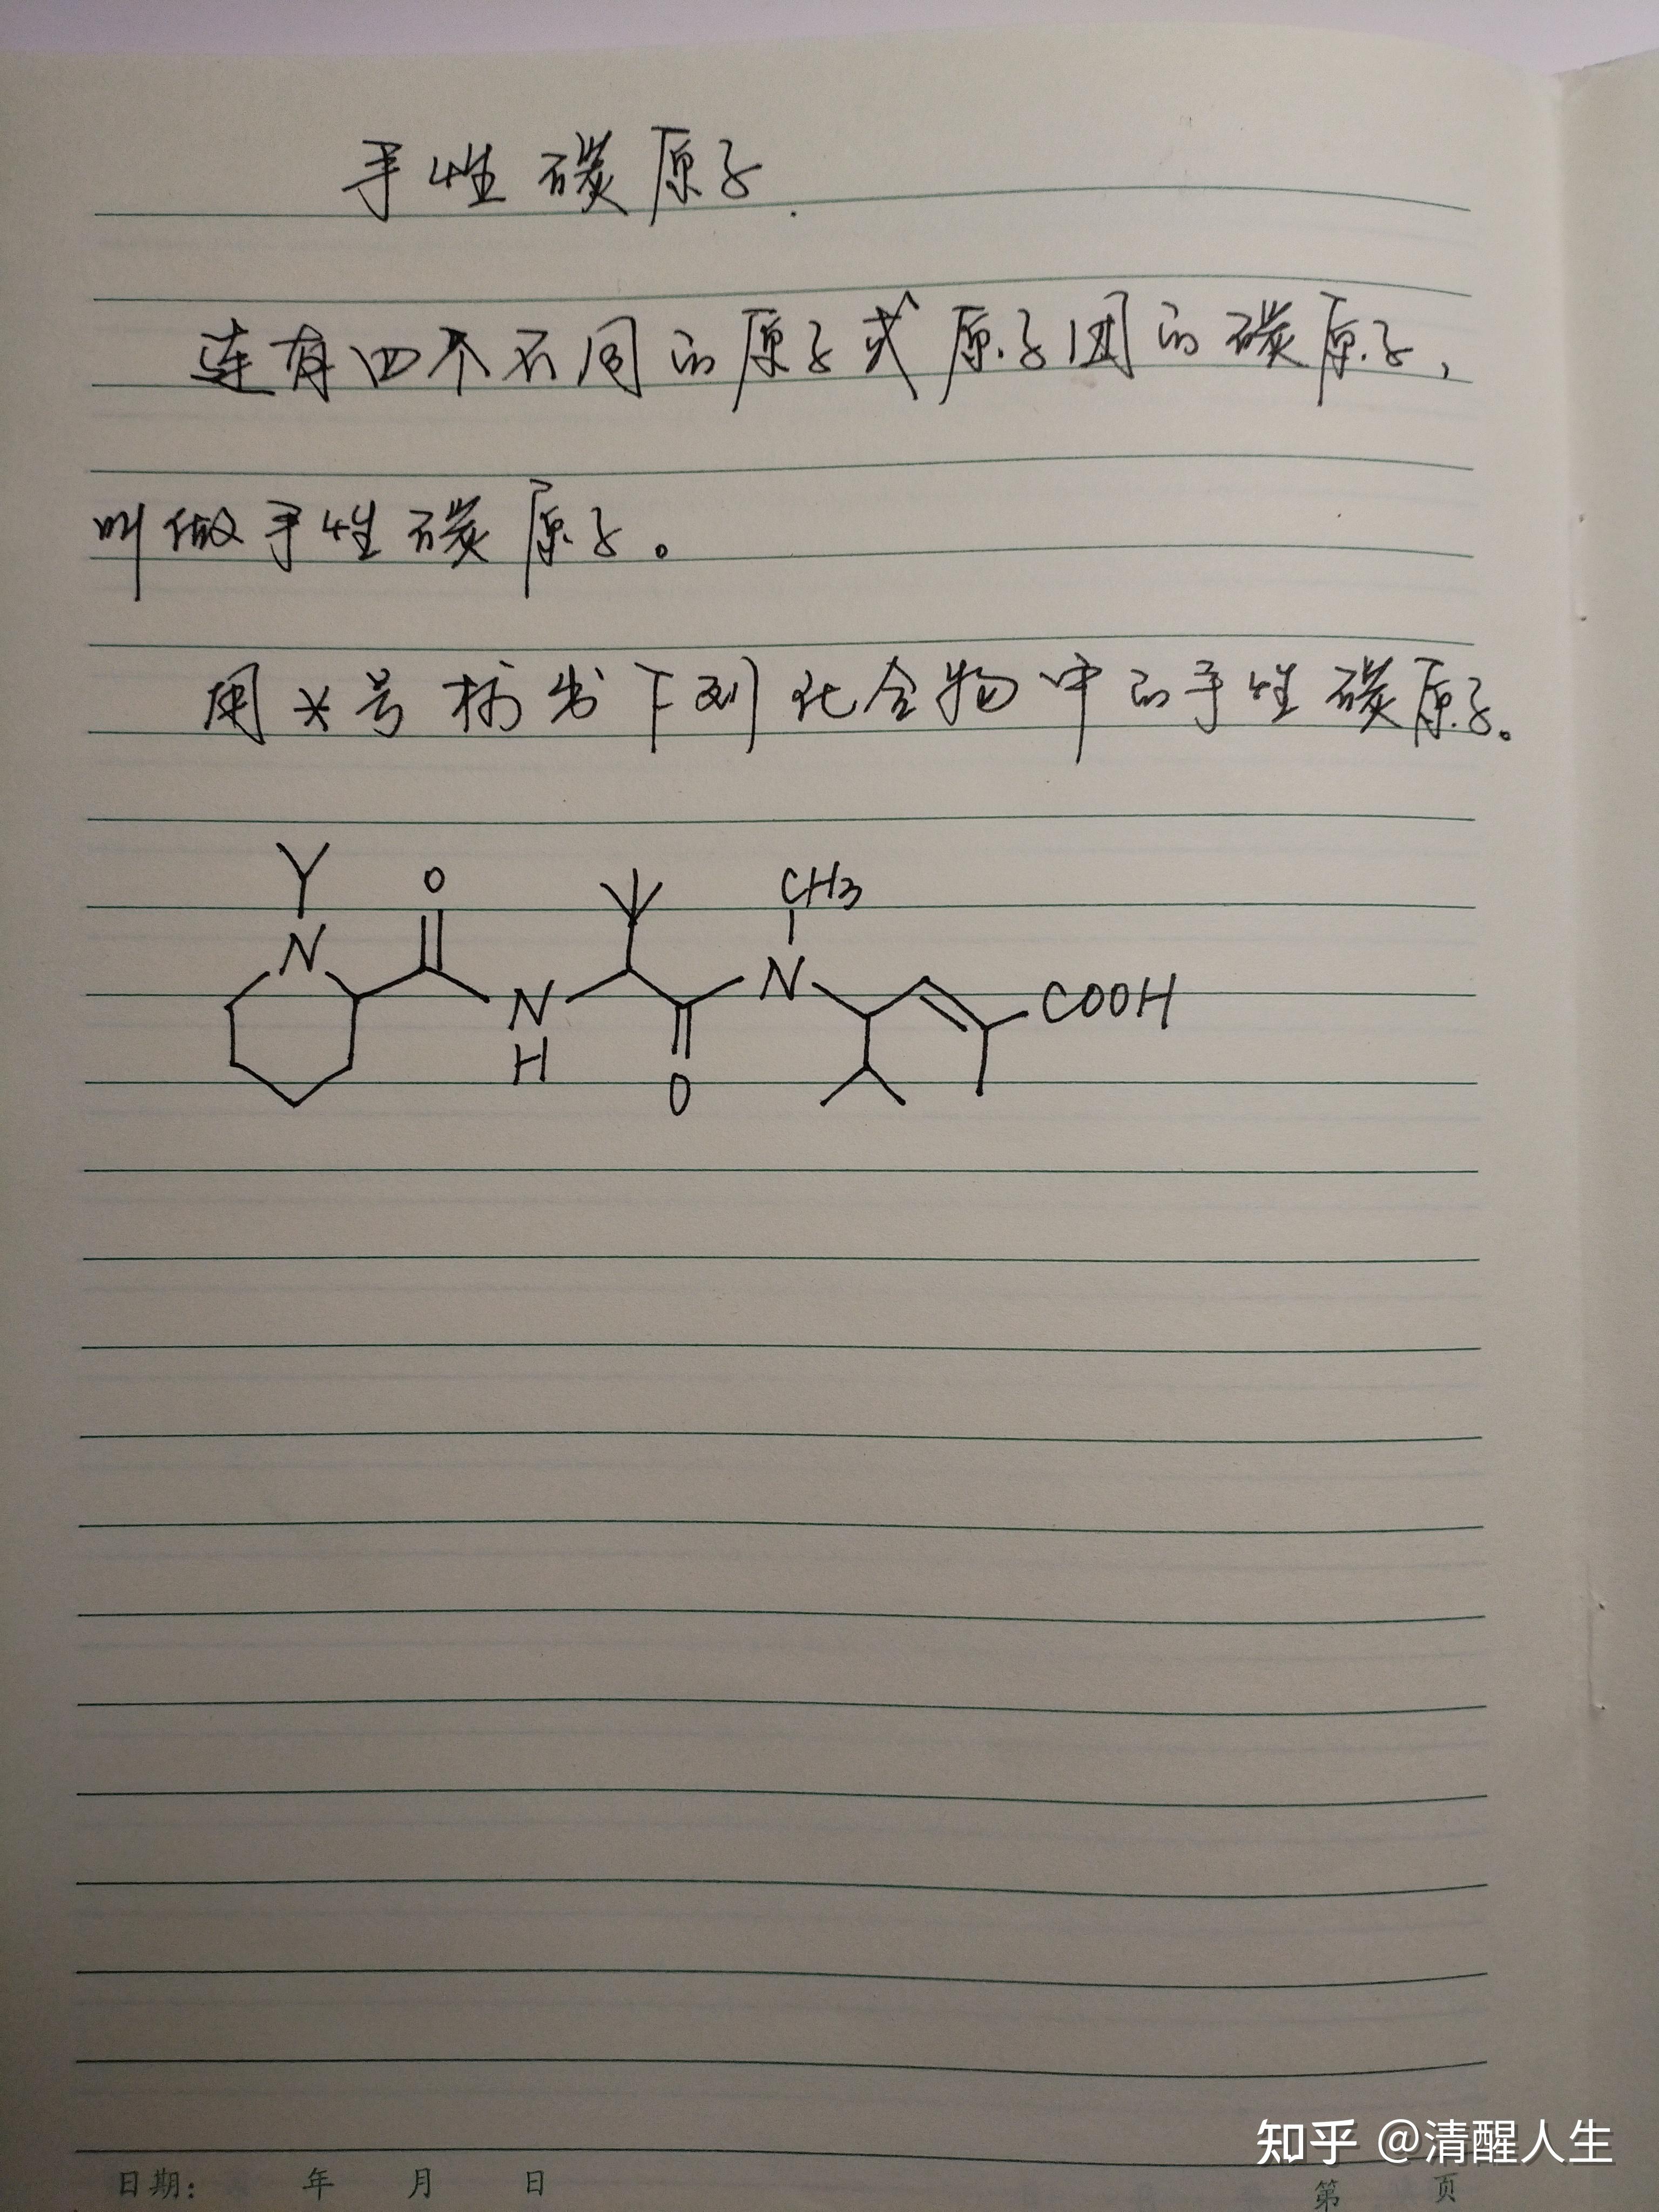 手性碳原子.
连有四个不同的原子或原子团的碳原子,
叫做手性碳原子。
用*号标出下列化合物中的手性碳原子。
O
CH3
N
N
N
COOH
H
O
知乎 @清醒人生
日期: 年 月 日
第 页